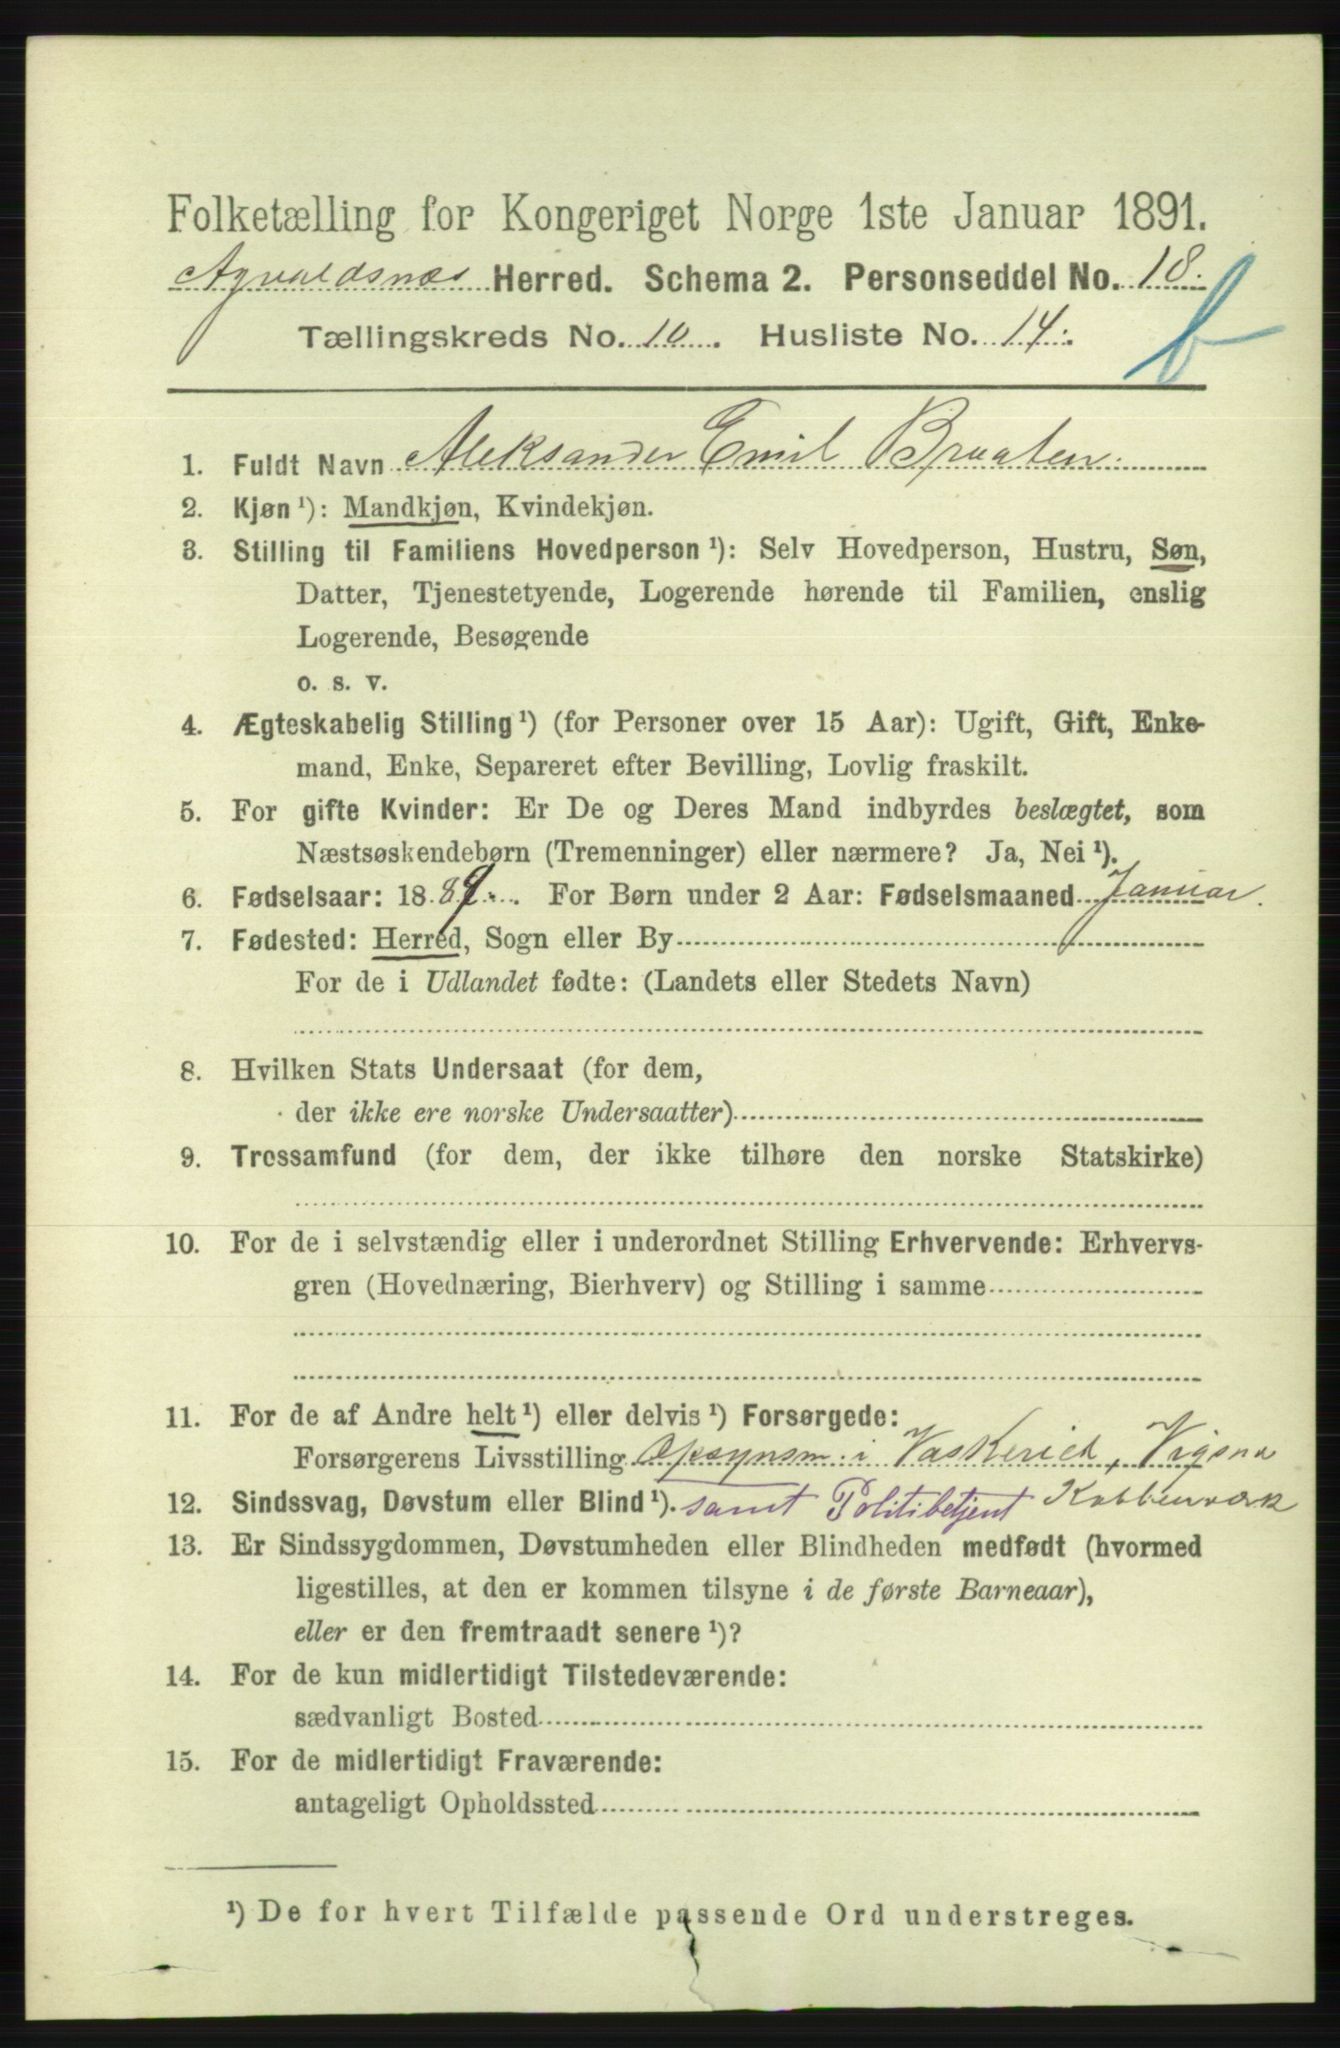 Folketælling for Kongeriget Norge 1ste Januar 1891.
Agvaldsnæs Herred. Schema 2. Personseddel No. 18.
Tællingskreds No. 10. Husliste No. 14.
b
1. Fuldt Navn Aleksander Emil Braaten.
2. Kjøn ¹): Mandkjøn, Kvindekjøn.
3. Stilling til Familiens Hovedperson ¹): Selv Hovedperson, Hustru, Søn,
Datter, Tjenestetyende, Logerende hørende til Familien, enslig
Logerende, Besøgende
o. s. v.
4. Ægteskabelig Stilling ¹) (for Personer over 15 Aar): Ugift, Gift, Enke-
mand, Enke, Separeret efter Bevilling, Lovlig fraskilt.
5. For gifte Kvinder: Er De og Deres Mand indbyrdes beslægtet, som
Næstsøskendebørn (Tremenninger) eller nærmere? Ja, Nei ¹).
6. Fødselsaar: 1889. For Børn under 2 Aar: Fødselsmaaned Januar.
7. Fødested: Herred, Sogn eller By
For de i Udlandet fødte: (Landets eller Stedets Navn)
8. Hvilken Stats Undersaat (for dem,
der ikke ere norske Undersaatter)
9. Trossamfund (for dem, der ikke tilhøre den norske Statskirke)
10. For de i selvstændig eller i underordnet Stilling Erhvervende: Erhvervs-
gren (Hovednæring, Bierhverv) og Stilling i samme
11. For de af Andre helt ¹) eller delvis ¹) Forsørgede:
Forsørgerens Livsstilling Opsynsm. i Vaskeriet, Vigsna
12. Sindssvag, Døvstum eller Blind ¹). samt Politibetjent Kobberværk
13. Er Sindssygdommen, Døvstumheden eller Blindheden medfødt (hvormed
ligestilles, at den er kommen tilsyne i de første Barneaar),
eller er den fremtraadt senere ¹)?
14. For de kun midlertidigt Tilstedeværende:
sædvanligt Bosted
15. For de midlertidigt Fraværende:
antageligt Opholdssted
¹) De for hvert Tilfælde passende Ord understreges.